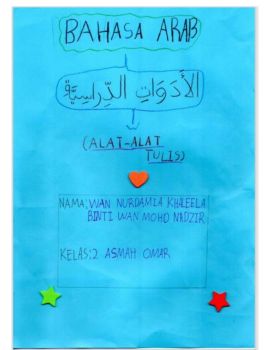 BAHASA ARAB
الأَدَوَاتِ الدِّرَاسِيَّةِ
(ALAT-ALAT
TULIS)
NAMA: WAN NURDAMIA KHALEELA
BINTI WAN MOHD NADZIR
KELAS: 2 ASMAH OMAR